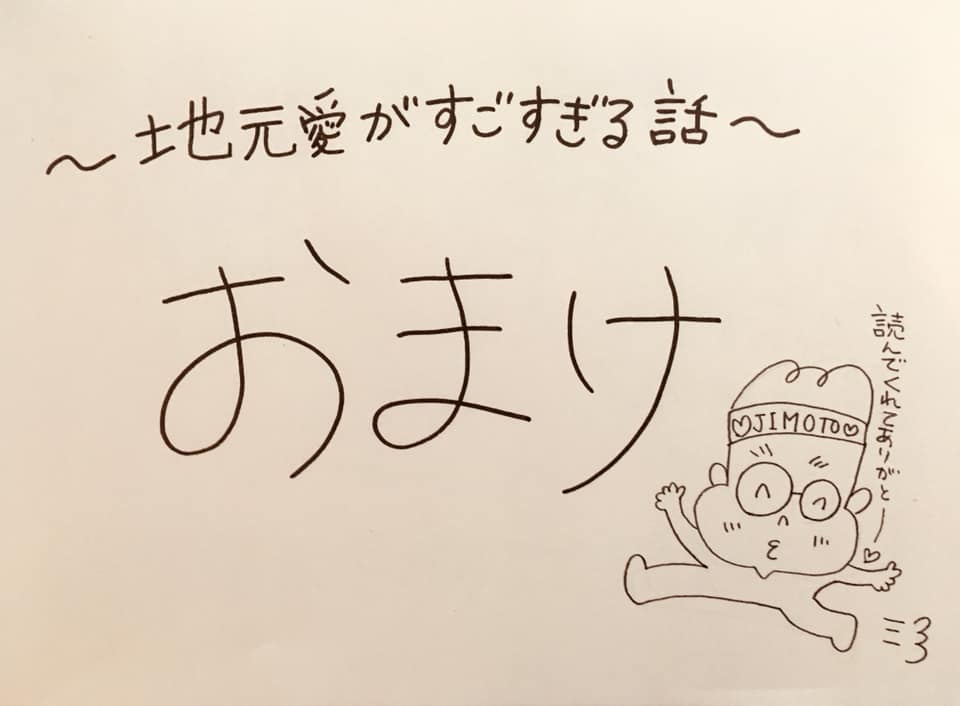 〜地元愛がすごすぎる話〜
おまけ
読んでくれてありがと〜♡
♡JIMOTO♡